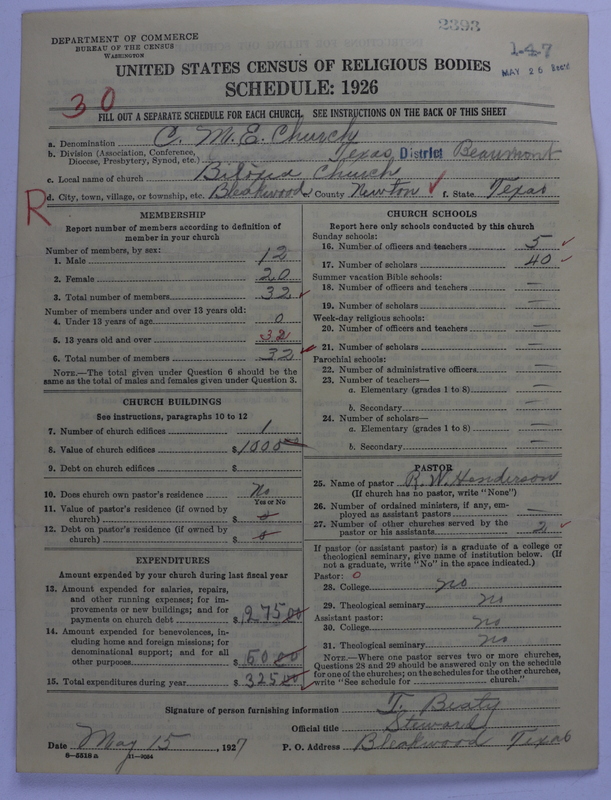 2393
DEPARTMENT OF COMMERCE
BUREAU OF THE CENSUS
WASHINGTON
147
MAY 26
UNITED STATES CENSUS OF RELIGIOUS BODIES
SCHEDULE: 1926
30
FILL OUT A SEPARATE SCHEDULE FOR EACH CHURCH. SEE INSTRUCTIONS ON THE BACK OF THIS SHEET
a. Denomination C. M. E. Church
b. Division (Association, Conference, Diocese, Presbytery, Synod, etc.) Texas, District Beaumont
c. Local name of church Church
R
d. City, town, village, or township, etc. Bleakwood County Newton f. State Texas
MEMBERSHIP
Report number of members according to definition of
member in your church
Number of members, by sex:
1. Male 12
2. Female 20
3. Total number of members 32
Number of members under and over 13 years old:
4. Under 13 years of age 0
5. 13 years old and over 32
6. Total number of members 32
NOTE.—The total given under Question 6 should be
same as the total of males and females given under Question 3.
CHURCH BUILDINGS
See instructions, paragraphs 10 to 12
7. Number of church edifices 1
8. Value of church edifices $1000 00
9. Debt on church edifices $
10. Does church own pastor's residence No
Yes or No
11. Value of pastor's residence (if owned by
church) $ 0
12. Debt on pastor's residence (if owned by
church) $ 0
EXPENDITURES
Amount expended by your church during last fiscal year
13. Amount expended for salaries, repairs,
and other running expenses; for improvements or new buildings; and for
payments on church debt $ 275 00
14. Amount expended for benevolences, including home and foreign missions; for
denominational support; and for all
other purposes $ 50 00
15. Total expenditures during year $ 325 00
CHURCH SCHOOLS
Report here only schools conducted by this church
Sunday schools:
16. Number of officers and teachers 5
17. Number of scholars 40
Summer vacation Bible schools:
18. Number of officers and teachers —
19. Number of scholars —
Week-day religious schools:
20. Number of officers and teachers —
21. Number of scholars —
Parochial schools:
22. Number of administrative officers —
23. Number of teachers—
a. Elementary (grades 1 to 8) —
b. Secondary —
24. Number of scholars—
a. Elementary (grades 1 to 8) —
b. Secondary —
PASTOR
25. Name of pastor R. W. Henderson
(If church has no pastor, write "None")
26. Number of ordained ministers, if any, employed as assistant pastors —
27. Number of other churches served by the
pastor or his assistants 2
If pastor (or assistant pastor) is a graduate of a college or
theological seminary, give name of institution below. (If
not a graduate, write "No" in the space indicated.)
Pastor: 0
28. College no
29. Theological seminary no
Assistant pastor:
30. College no
31. Theological seminary no
NOTE.—Where one pastor serves two or more churches,
Questions 28 and 29 should be answered only on the schedule
for one of the churches; on the schedules for the other churches,
write "See schedule for church."
Signature of person furnishing information T.
Official title Steward
Date May 15, 1927 P. O. Address Bleakwood Texas
8—5518 a 11—9034